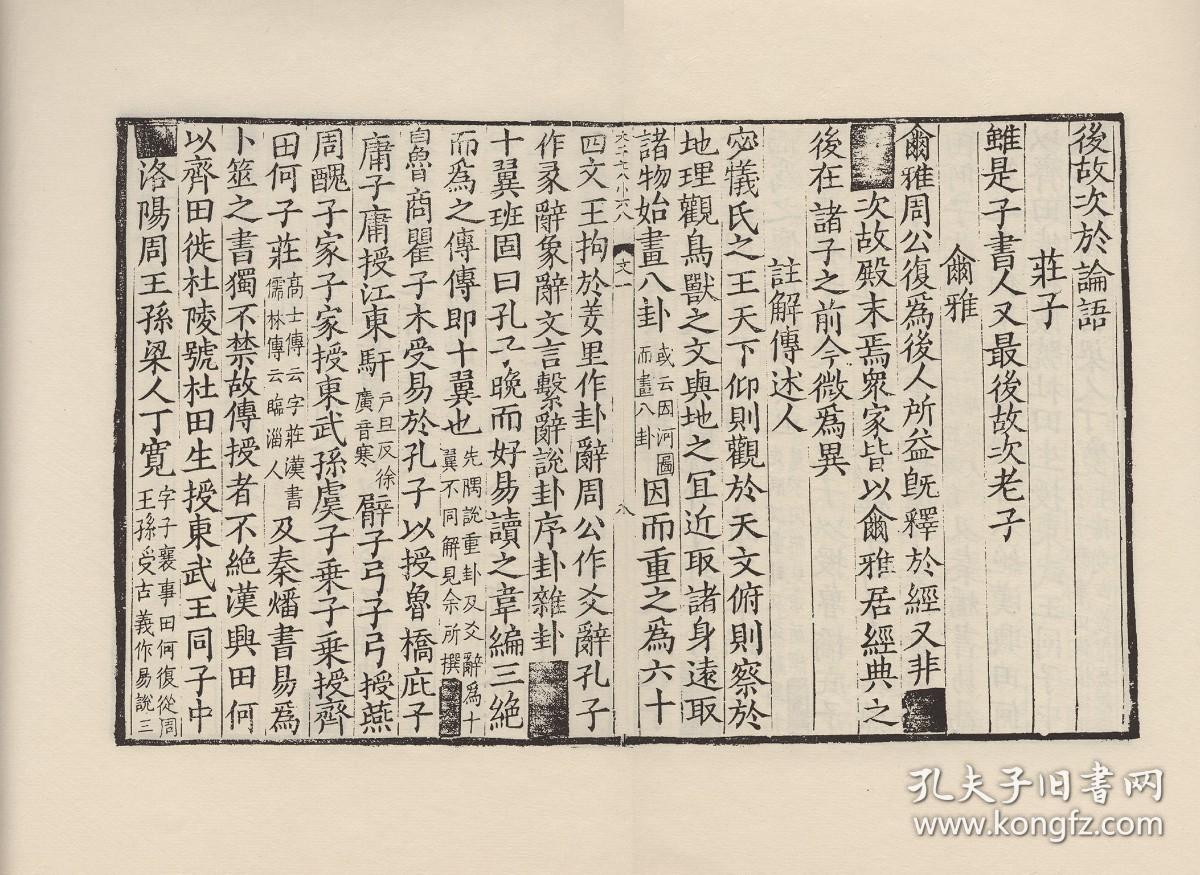 後故次於論語
莊子
雖是子書人又最後故次老子
爾雅
爾雅周公復爲後人所益既釋於經又非
次故殿末焉衆家皆以爾雅居經典之
後在諸子之前今微爲異
註解傳述人
宓犧氏之王天下仰則觀於天文俯則察於
地理觀鳥獸之文與地之冝近取諸身遠取
諸物始畫八卦或云因河圖而畫八卦因而重之爲六十
文一
八
四文王拘於羑里作卦辭周公作爻辭孔子
作彖辭象辭文言繫辭說卦序卦雜卦
十翼班固曰孔子晚而好易讀之韋編三絶
而爲之傳傳即十翼也先儒說重卦及爻辭爲十翼不同解見余所撰
自魯商瞿子木受易於孔子以授魯橋庇子
庸子庸授江東馯戶旦反徐廣音寒臂子弓子弓授燕
周醜子家子家授東武孫虞子乘子乘授齊
田何子莊高士傳云字莊漢書儒林傳云臨淄人及秦燔書易爲
卜筮之書獨不禁故傳授者不絶漢興田何
以齊田徙杜陵號杜田生授東武王同子中
洛陽周王孫梁人丁寬字子襄事田何復從周王孫受古義作易說三
孔夫子旧书网
www.kongfz.com